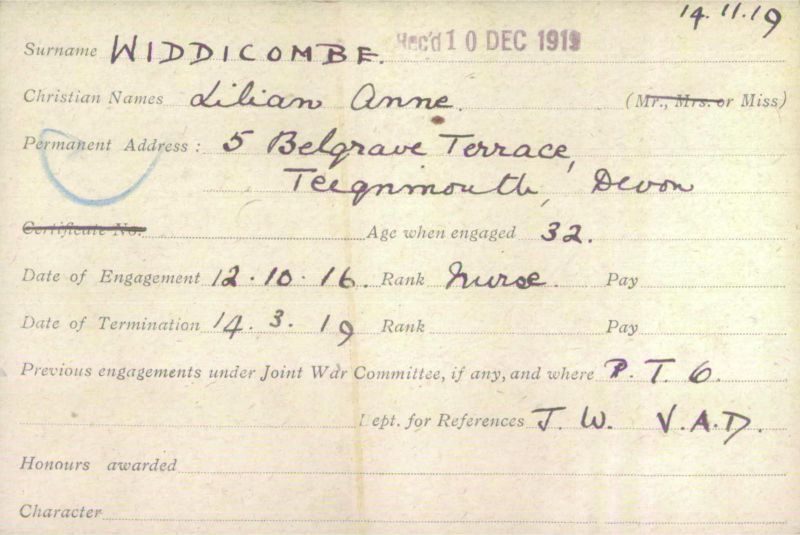 14.11.19
Surname WIDDICOMBE. Rec'd 10 DEC 1919
Christian Names Lilian Anne. (Mr., Mrs. or Miss)
Permanent Address: 5 Belgrave Terrace,
Teignmouth, Devon
Certificate No. Age when engaged 32.
Date of Engagement 12.10.16. Rank Nurse. Pay
Date of Termination 14.3.19 Rank Pay
Previous engagements under Joint War Committee, if any, and where P.T.O.
Dept. for References J.W. V.A.D.
Honours awarded
Character